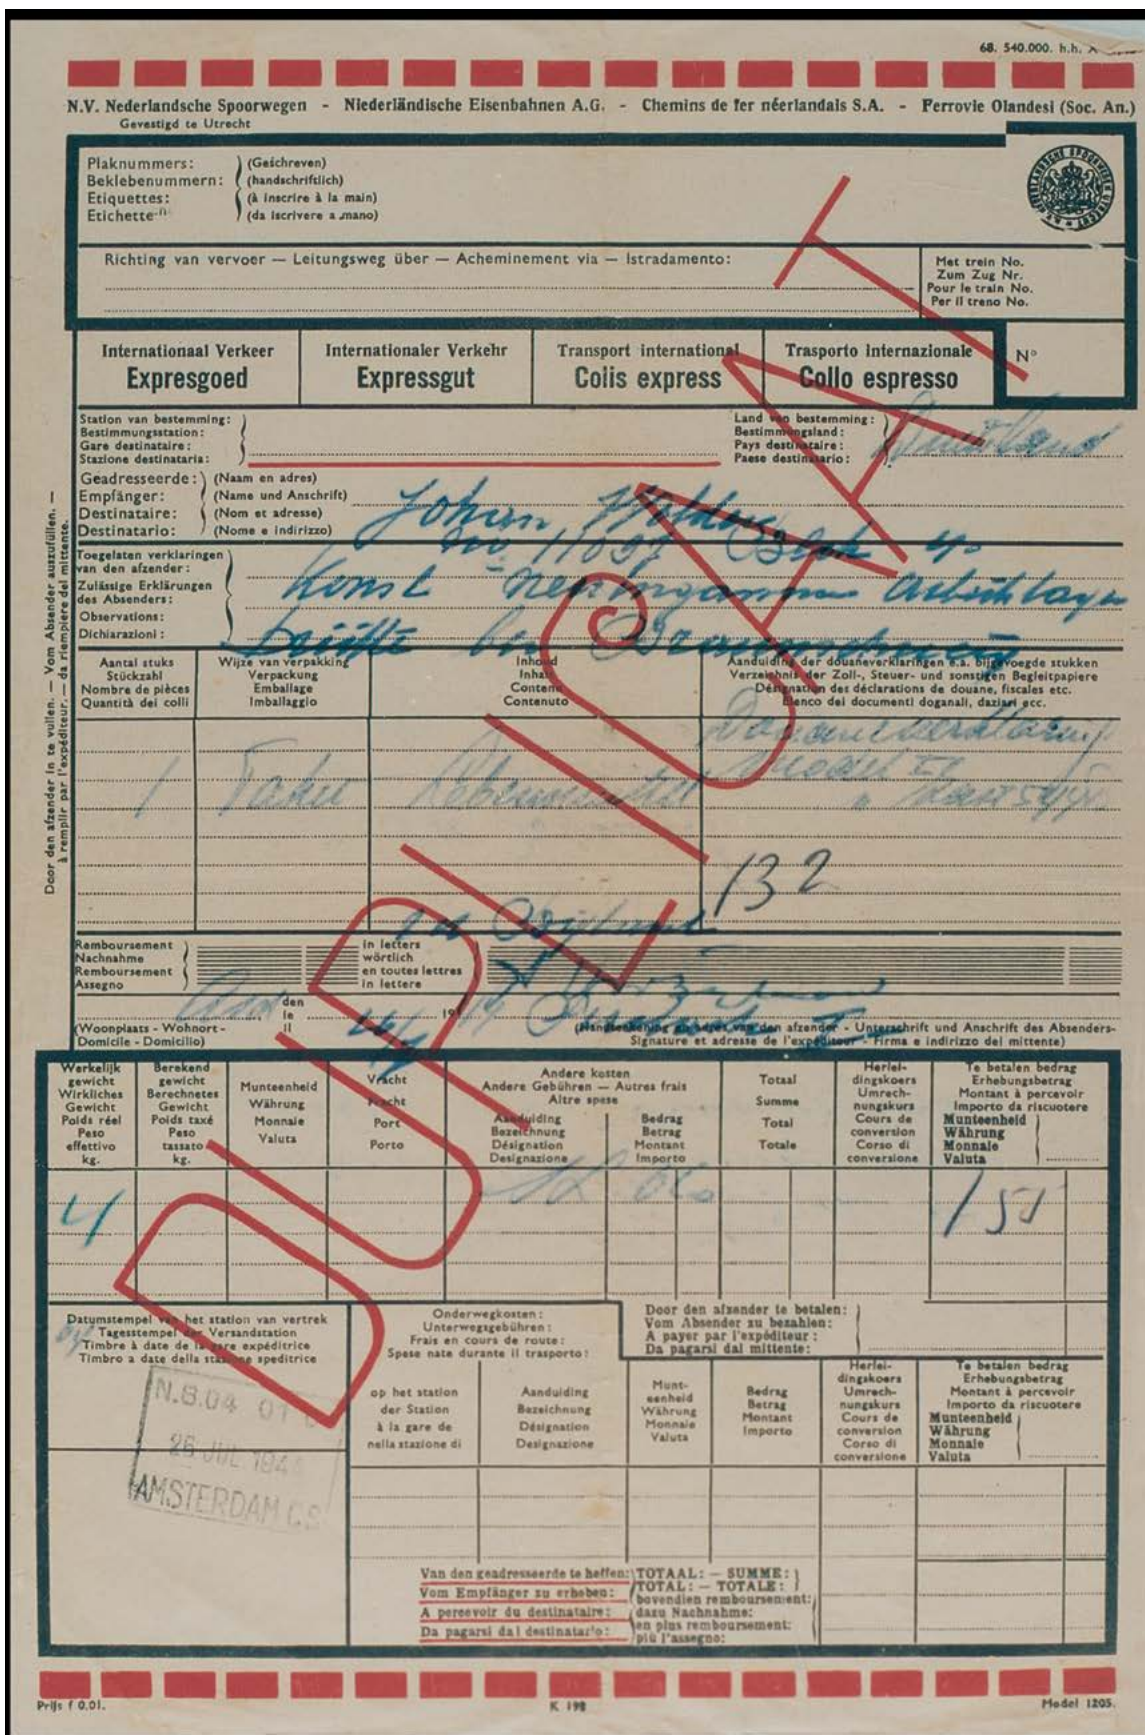 68. 540.000. h.h.
N.V. Nederlandsche Spoorwegen - Niederländische Eisenbahnen A.G. - Chemins de fer néerlandais S.A. - Ferrovie Olandesi (Soc. An.)
Gevestigd te Utrecht
Plaknummers: (Geschreven)
Beklebenummern: (handschriftlich)
Etiquettes: (à inscrire à la main)
Etichette (da iscrivere a mano)
Richting van vervoer — Leitungsweg über — Acheminement via — Istradamento:
Met trein No.
Zum Zug Nr.
Pour le train No.
Per il treno No.
Internationaal Verkeer
Expresgoed
Internationaler Verkehr
Expressgut
Transport international
Colis express
Trasporto internazionale
Collo espresso
N°
DUPLICAAT
Station van bestemming:
Bestimmungsstation:
Gare destinataire:
Stazione destinataria:
Land van bestemming:
Bestimmungsland:
Pays destinataire:
Paese destinatario:
Duitsland
Geadresseerde: (Naam en adres)
Empfänger: (Name und Anschrift)
Destinataire: (Nom et adresse)
Destinatario: (Nome e indirizzo)
Johan
No 11057 Block
Toegelaten verklaringen
van den afzender:
Zulässige Erklärungen
des Absenders:
Observations:
Dichiarazioni:
Konst Neuengamme
Drütte bei Braunschweig
Door den afzender in te vullen. — Vom Absender auszufüllen. —
à remplir par l'expéditeur. — da riempiere del mittente.
Aantal stuks
Stückzahl
Nombre de pièces
Quantità dei colli
Wijze van verpakking
Verpackung
Emballage
Imballaggio
Inhoud
Inhalt
Contenu
Contenuto
Aanduiding der douaneverklaringen e.a. bijgevoegde stukken
Verzeichnis der Zoll-, Steuer- und sonstigen Begleitpapiere
Désignation des déclarations de douane, fiscales etc.
Elenco dei documenti doganali, daziari ecc.
Douaneverklaring
1 Paket Lebensmittel model
132
Remboursement
Nachnahme
Remboursement
Assegno
in letters
wörtlich
en toutes lettres
in lettere
den
le
il
19
(Woonplaats - Wohnort -
Domicile - Domicilio)
(Handteekening en adres van den afzender - Unterschrift und Anschrift des Absenders-
Signature et adresse de l'expéditeur - Firma e indirizzo del mittente)
Werkelijk
gewicht
Wirkliches
Gewicht
Poids réel
Peso
effettivo
kg.
Berekend
gewicht
Berechnetes
Gewicht
Poids taxé
Peso
tassato
kg.
Munteenheid
Währung
Monnaie
Valuta
Vracht
Fracht
Port
Porto
Andere kosten
Andere Gebühren — Autres frais
Altre spese
Aanduiding
Bezeichnung
Désignation
Designazione
Bedrag
Betrag
Montant
Importo
Totaal
Summe
Total
Totale
Herlei-
dingskoers
Umrech-
nungskurs
Cours de
conversion
Corso di
conversione
Te betalen bedrag
Erhebungsbetrag
Montant à percevoir
Importo da riscuotere
Munteenheid
Währung
Monnaie
Valuta
4
155
Datumstempel van het station van vertrek
Tagesstempel der Versandstation
Timbre à date de la gare expéditrice
Timbro a date della stazione speditrice
N.S.04 01
26 JUL 1944
AMSTERDAM C.S.
Onderwegkosten:
Unterwegsgebühren:
Frais en cours de route:
Spese nate durante il trasporto:
Door den afzender te betalen:
Vom Absender zu bezahlen:
A payer par l'expéditeur:
Da pagarsi dal mittente:
op het station
der Station
à la gare de
nella stazione di
Aanduiding
Bezeichnung
Désignation
Designazione
Munt-
eenheid
Währung
Monnaie
Valuta
Bedrag
Betrag
Montant
Importo
Herlei-
dingskoers
Umrech-
nungskurs
Cours de
conversion
Corso di
conversione
Te betalen bedrag
Erhebungsbetrag
Montant à percevoir
Importo da riscuotere
Munteenheid
Währung
Monnaie
Valuta
Van den geadresseerde te heffen:
Vom Empfänger zu erheben:
A percevoir du destinataire:
Da pagarsi dal destinatario:
TOTAAL: — SUMME:
TOTAL: — TOTALE:
bovendien remboursement:
dazu Nachnahme:
en plus remboursement:
più l'assegno:
Prijs f 0.01.
K 198
Model 1205.